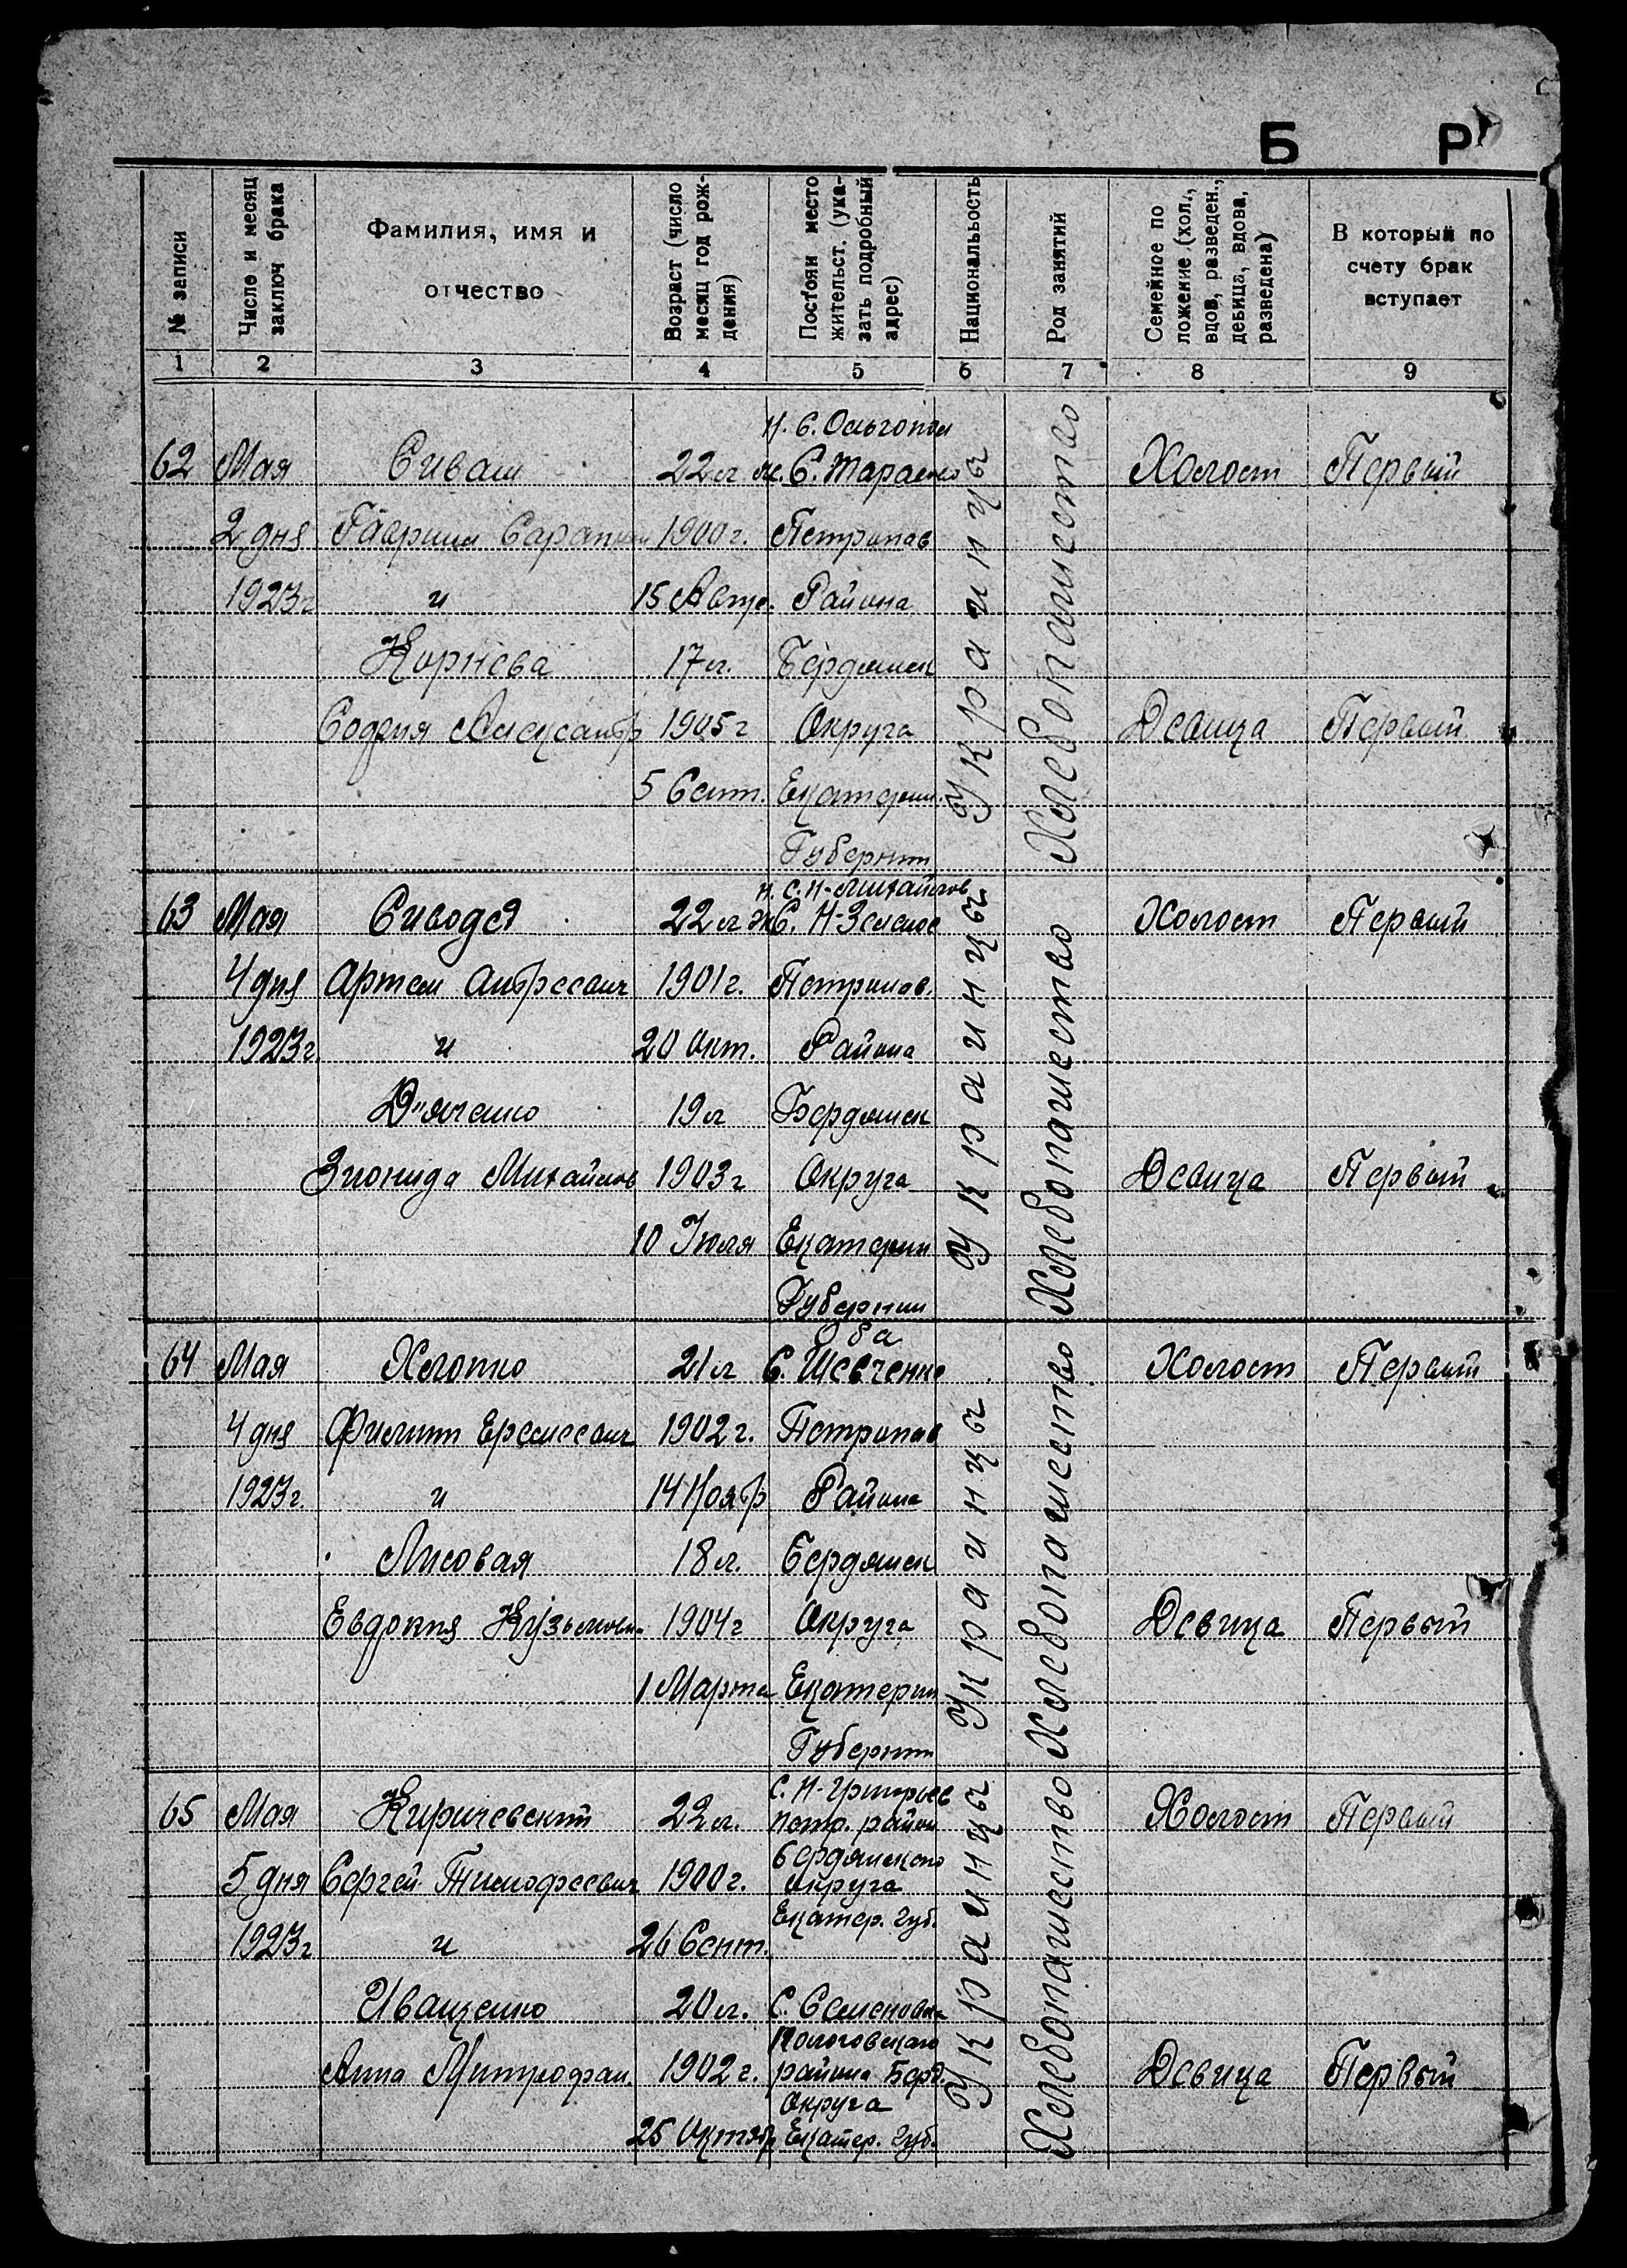 Б Р
№ записи
Число и месяц заключ брака
Фамилия, имя и отчество
Возраст (число месяц год рождения)
Постоян место жительст. (указать подробный адрес)
Национальность
Род занятий
Семейное положение (хол., вдов, разведен., девица, вдова, разведена)
В который по счету брак вступает
1 2 3 4 5 6 7 8 9
Н. С. Ольгопол
62 Мая Сиваш 22 л. м. С. Тарасово Холост Первый
2 дня Гавриил 1900 г. Петропав
1923 г и 15 Района
Корнева 17 л. Бердянск
София Александр 1905 г Округа Девица Первый
5 Сент. Екатерин.
Губернии
Украинцы
Хлебопашество
Н. С. Н-Михайлов
63 Мая Сиводед 22 л С. Н-Зеленое Холост Первый
4 дня Артем Андреевич 1901 г. Петропав.
1923 г. и 20 Окт. Района
Д"яченко 19 л Бердянск
Зионида Михайлов 1903 г Округа Девица Первый
10 Июля Екатерин
Губернии
Украинцы
Хлебопашество
Оба
64 Мая Хлопко 21 л С. Шевченко Холост Первый
4 дня Филипп Еремеевич 1902 г. Петропав
1923 г. и 14 Ноябр Района
Лисовая 18 л. Бердянск
Евдокия Кузьмовн. 1904 г Округа Девица Первый
1 Марта Екатерин
Губернии
Украинцы
Хлебопашество
С. Н-Григорьев
65 Мая Киричевский 22 л. петр. район Холост Первый
Бердянского
5 дня Сергей Тимофеевич 1900 г. округа
Екатер. губ.
1923 г и 26 Сент.
Иващенко 20 л. С. Семеновка
Пологовского
Анна Митрофан. 1902 г. района Берд. Девица Первый
Округа
25 Октябр Екатер. губ.
Украинцы
Хлебопашество